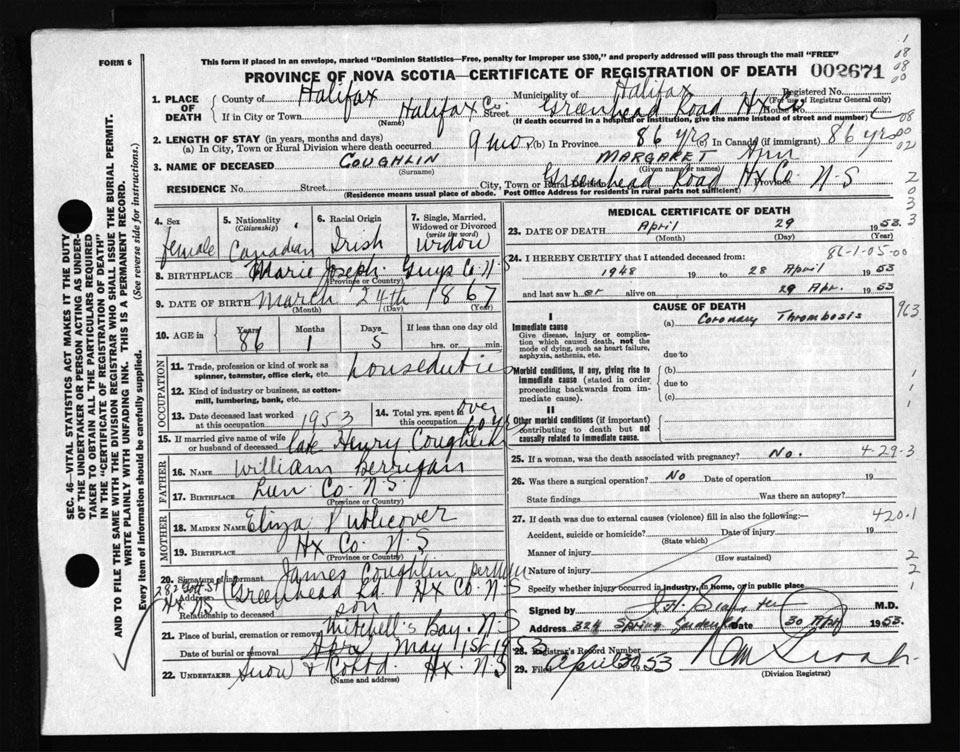 FORM 6
This form if placed in an envelope, marked "Dominion Statistics—Free, penalty for improper use $300," and properly addressed will pass through the mail "FREE"
PROVINCE OF NOVA SCOTIA—CERTIFICATE OF REGISTRATION OF DEATH 002671
1. PLACE OF DEATH
County of Halifax Municipality of Halifax Registered No.
(For use of Registrar General only)
If in City or Town Halifax Co. Street Greenhead Road Hx Co.
(Name) (If death occurred in a hospital or institution, give the name instead of street and number)
2. LENGTH OF STAY (in years, months and days)
(a) In City, Town or Rural Division where death occurred 9 mos. (b) In Province 86 yrs (c) In Canada (if immigrant) 86 yrs
3. NAME OF DECEASED COUGHLIN MARGARET Ann
(Surname) (Given name or names)
RESIDENCE No. Street City, Town or Rural Division Greenhead Road Hx Co. Province N-S
(Residence means usual place of abode. Post Office Address for residents in rural parts not sufficient)
4. Sex female
5. Nationality (Citizenship) Canadian
6. Racial Origin Irish
7. Single, Married, Widowed or Divorced (write the word) widow
8. BIRTHPLACE Marie Joseph. Guys Co. N-S
(Province or Country)
9. DATE OF BIRTH March 24th 1867
(Month) (Day) (Year)
10. AGE in Years 86 Months 1 Days 5 If less than one day old hrs. or min.
OCCUPATION
11. Trade, profession or kind of work as spinner, teamster, office clerk, etc. houseduties
12. Kind of industry or business, as cotton-mill, lumbering, bank, etc.
13. Date deceased last worked at this occupation 1953
14. Total yrs. spent in this occupation over 60 yrs
15. If married give name of wife or husband of deceased late Henry Coughlin
FATHER
16. NAME William Berrigan
17. BIRTHPLACE Lun Co. N.S.
(Province or Country)
MOTHER
18. MAIDEN NAME Eliza Publicover
19. BIRTHPLACE Hx Co. N.S
(Province or Country)
20. Signature of informant James Coughlin
Address Greenhead Rd. Hx Co. N-S
Relationship to deceased son
21. Place of burial, cremation or removal Mitchell's Bay. N-S
Date of burial or removal May 1st 1953
22. UNDERTAKER Snow & Co Ltd. Hx N-S
(Name and address)
MEDICAL CERTIFICATE OF DEATH
23. DATE OF DEATH April 29 1953.
(Month) (Day) (Year)
24. I HEREBY CERTIFY that I attended deceased from:
1948 to 28 April 1953
and last saw her alive on 29 Apr. 1953
CAUSE OF DEATH
I
Immediate cause (a) Coronary Thrombosis
Give disease, injury or complication which caused death, not the mode of dying, such as heart failure, asphyxia, asthenia, etc.
due to
Morbid conditions, if any, giving rise to immediate cause (stated in order proceeding backwards from immediate cause).
(b)
due to
(c)
II
Other morbid conditions (if important) contributing to death but not causally related to immediate cause.
25. If a woman, was the death associated with pregnancy? No. 4-29-3
26. Was there a surgical operation? No Date of operation 19
State findings Was there an autopsy?
27. If death was due to external causes (violence) fill in also the following:— 420.1
Accident, suicide or homicide? Date of injury 19
(State which)
Manner of injury
(How sustained)
Nature of injury
Specify whether injury occurred in industry, in home, or in public place
Signed by M.D.
Address 324 Spring Garden Rd Date 30 Apr 1953.
28. Registrar's Record Number
29. Filed April 30 53
(Division Registrar)
SEC. 46—VITAL STATISTICS ACT MAKES IT THE DUTY OF THE UNDERTAKER OR PERSON ACTING AS UNDERTAKER TO OBTAIN ALL THE PARTICULARS REQUIRED IN THE "CERTIFICATE OF REGISTRATION OF DEATH" AND TO FILE THE SAME WITH THE DIVISION REGISTRAR WHO SHALL ISSUE THE BURIAL PERMIT.
WRITE PLAINLY WITH UNFADING INK. THIS IS A PERMANENT RECORD.
Every item of information should be carefully supplied. (See reverse side for instructions.)